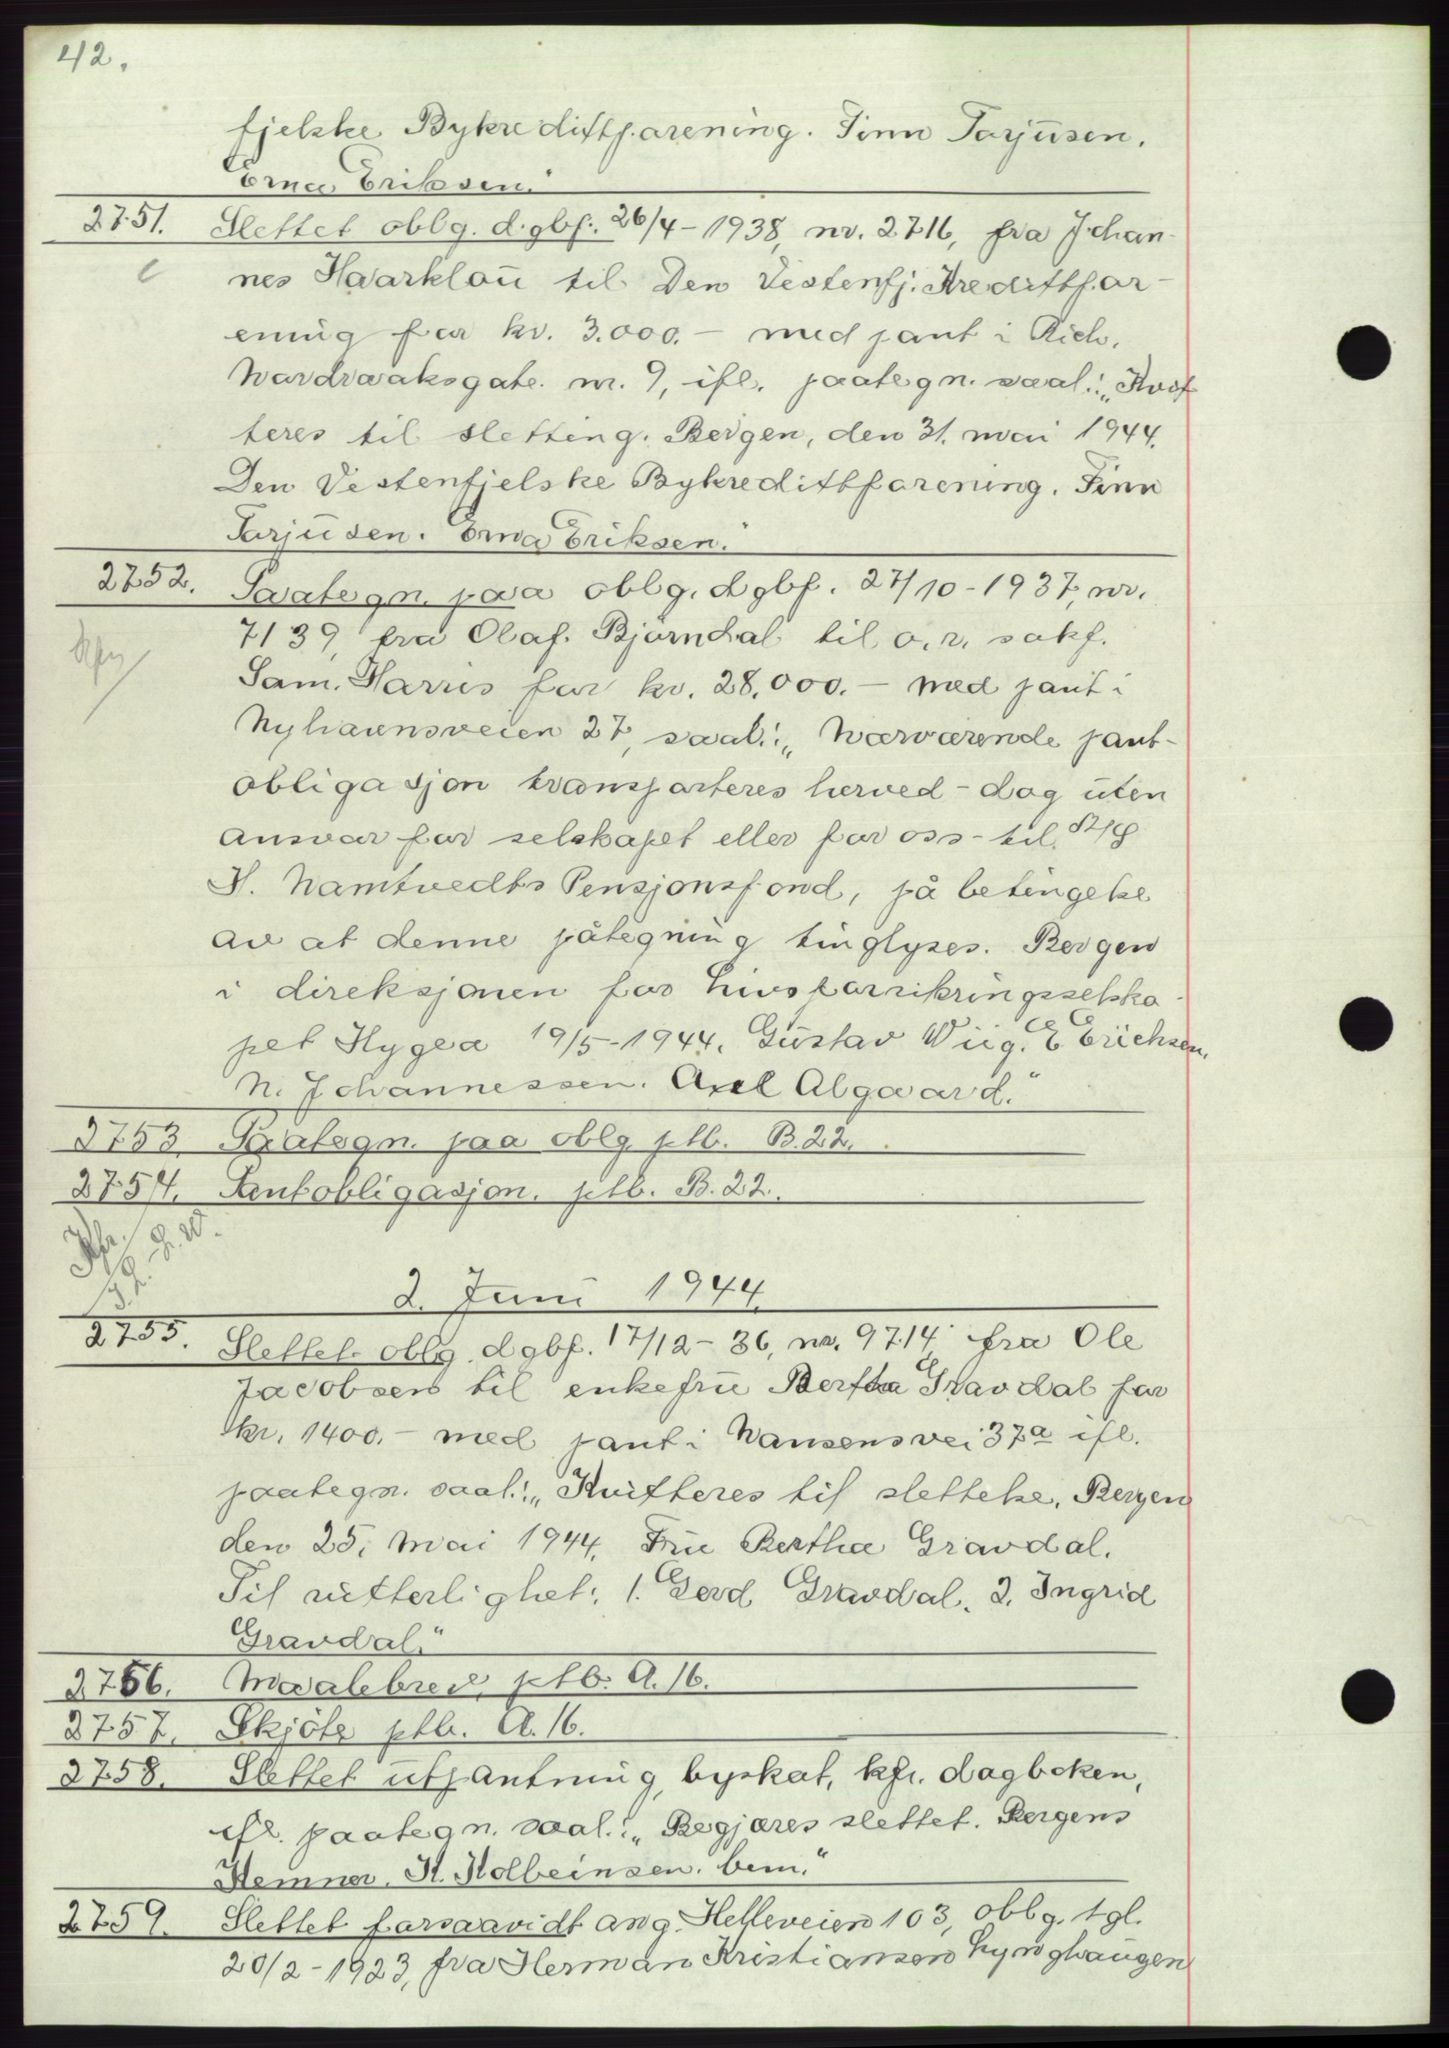 42.
fjelske Bykredittforening. Finn Torjusen.
Erna Eriksen."
2751. Slettet oblg. dgbf. 26/4-1938, nr. 2716, fra Johan-
nes Haarklou til Den Vestenfj. Kredittfor-
ening for kr. 3.000.- med pant i Rich.
Nordraaksgate nr. 9, ifl. paategn. saal.: „Kvit
teres til sletting. Bergen, den 31. mai 1944.
Den Vestenfjelske Bykredittforening. Finn
Torjusen. Erna Eriksen."
2752. Paategn. paa oblg. dgbf. 27/10-1937, nr.
7139, fra Olaf Bjørndal til o.r. sakf.
Sam. Harris for kr. 28.000.- med pant i
Nyhavnsveien 27, saal.: „Nærværende pant-
obligasjon transporteres herved - dog uten
ansvar for selskapet eller for oss - til
H. Namtvedts Pensjonsfond, på betingelse
av at denne påtegning tinglyses. Bergen
i direksjonen for Livsforsikringsselska-
pet Hygea 19/5-1944. Gustav Wiig. E Erichsen.
N. Johannessen. Axel Algaard."
2753. Paategn. paa oblg. ptb. B.22.
2754. Pantobligasjon. ptb. B.22.
2. Juni 1944.
2755. Slettet oblg. dgbf. 17/12-36, nr. 9714 fra Ole
Jacobsen til enkefru Bertha Gravdal for
kr. 1400.- med pant i Nansensvei 37a ifl.
paategn. saal.: „Kvitteres til slettelse. Bergen
den 25. mai 1944. Fru Bertha Gravdal.
Til vitterlighet: 1. Gerd Gravdal. 2. Ingrid
Gravdal."
2756. Maalebrev, ptb. A.16.
2757. Skjöte ptb. A.16.
2758. Slettet utpantning, byskat, kfr. dagboken,
ifl. paategn. saal.: „Begjæres slettet. Bergens
Kemner. H. Kolbeinsen. bem."
2759. Slettet forsaavidt ang. Helleveien 103, oblg. tgl.
20/2-1923, fra Herman Kristiansen Lynghaugen